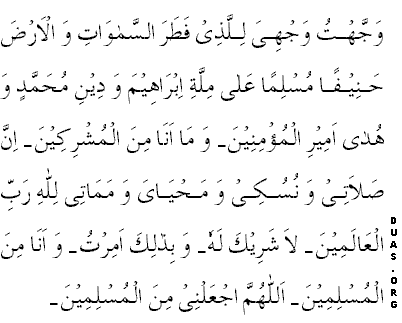 وَجَّهْتُ وَجْهِىَ لِلَّذِىْ فَطَرَ السَّمٰوَاتِ وَ الْاَرْضَ
حَنِيْفًا مُسْلِمًا عَلٰى مِلَّةِ اِبْرَاهِيْمَ وَ دِيْنِ مُحَمَّدٍ وَ
هُدٰى اَمِيْرِ الْمُؤْمِنِيْنَ۔ وَ مَا اَنَا مِنَ الْمُشْرِكِيْنَ۔ اِنَّ
صَلَاتِىْ وَ نُسُكِىْ وَ مَحْيَاىَ وَ مَمَاتِى لِلّٰهِ رَبِّ
الْعَالَمِيْنَ۔ لاَ شَرِيْكَ لَهٗ۔ وَ بِذٰلِكَ اُمِرْتُ۔ وَ اَنَا مِنَ
الْمُسْلِمِيْنَ۔ اَللّٰهُمَّ اجْعَلْنِىْ مِنَ الْمُسْلِمِيْنَ۔
DUAS.ORG